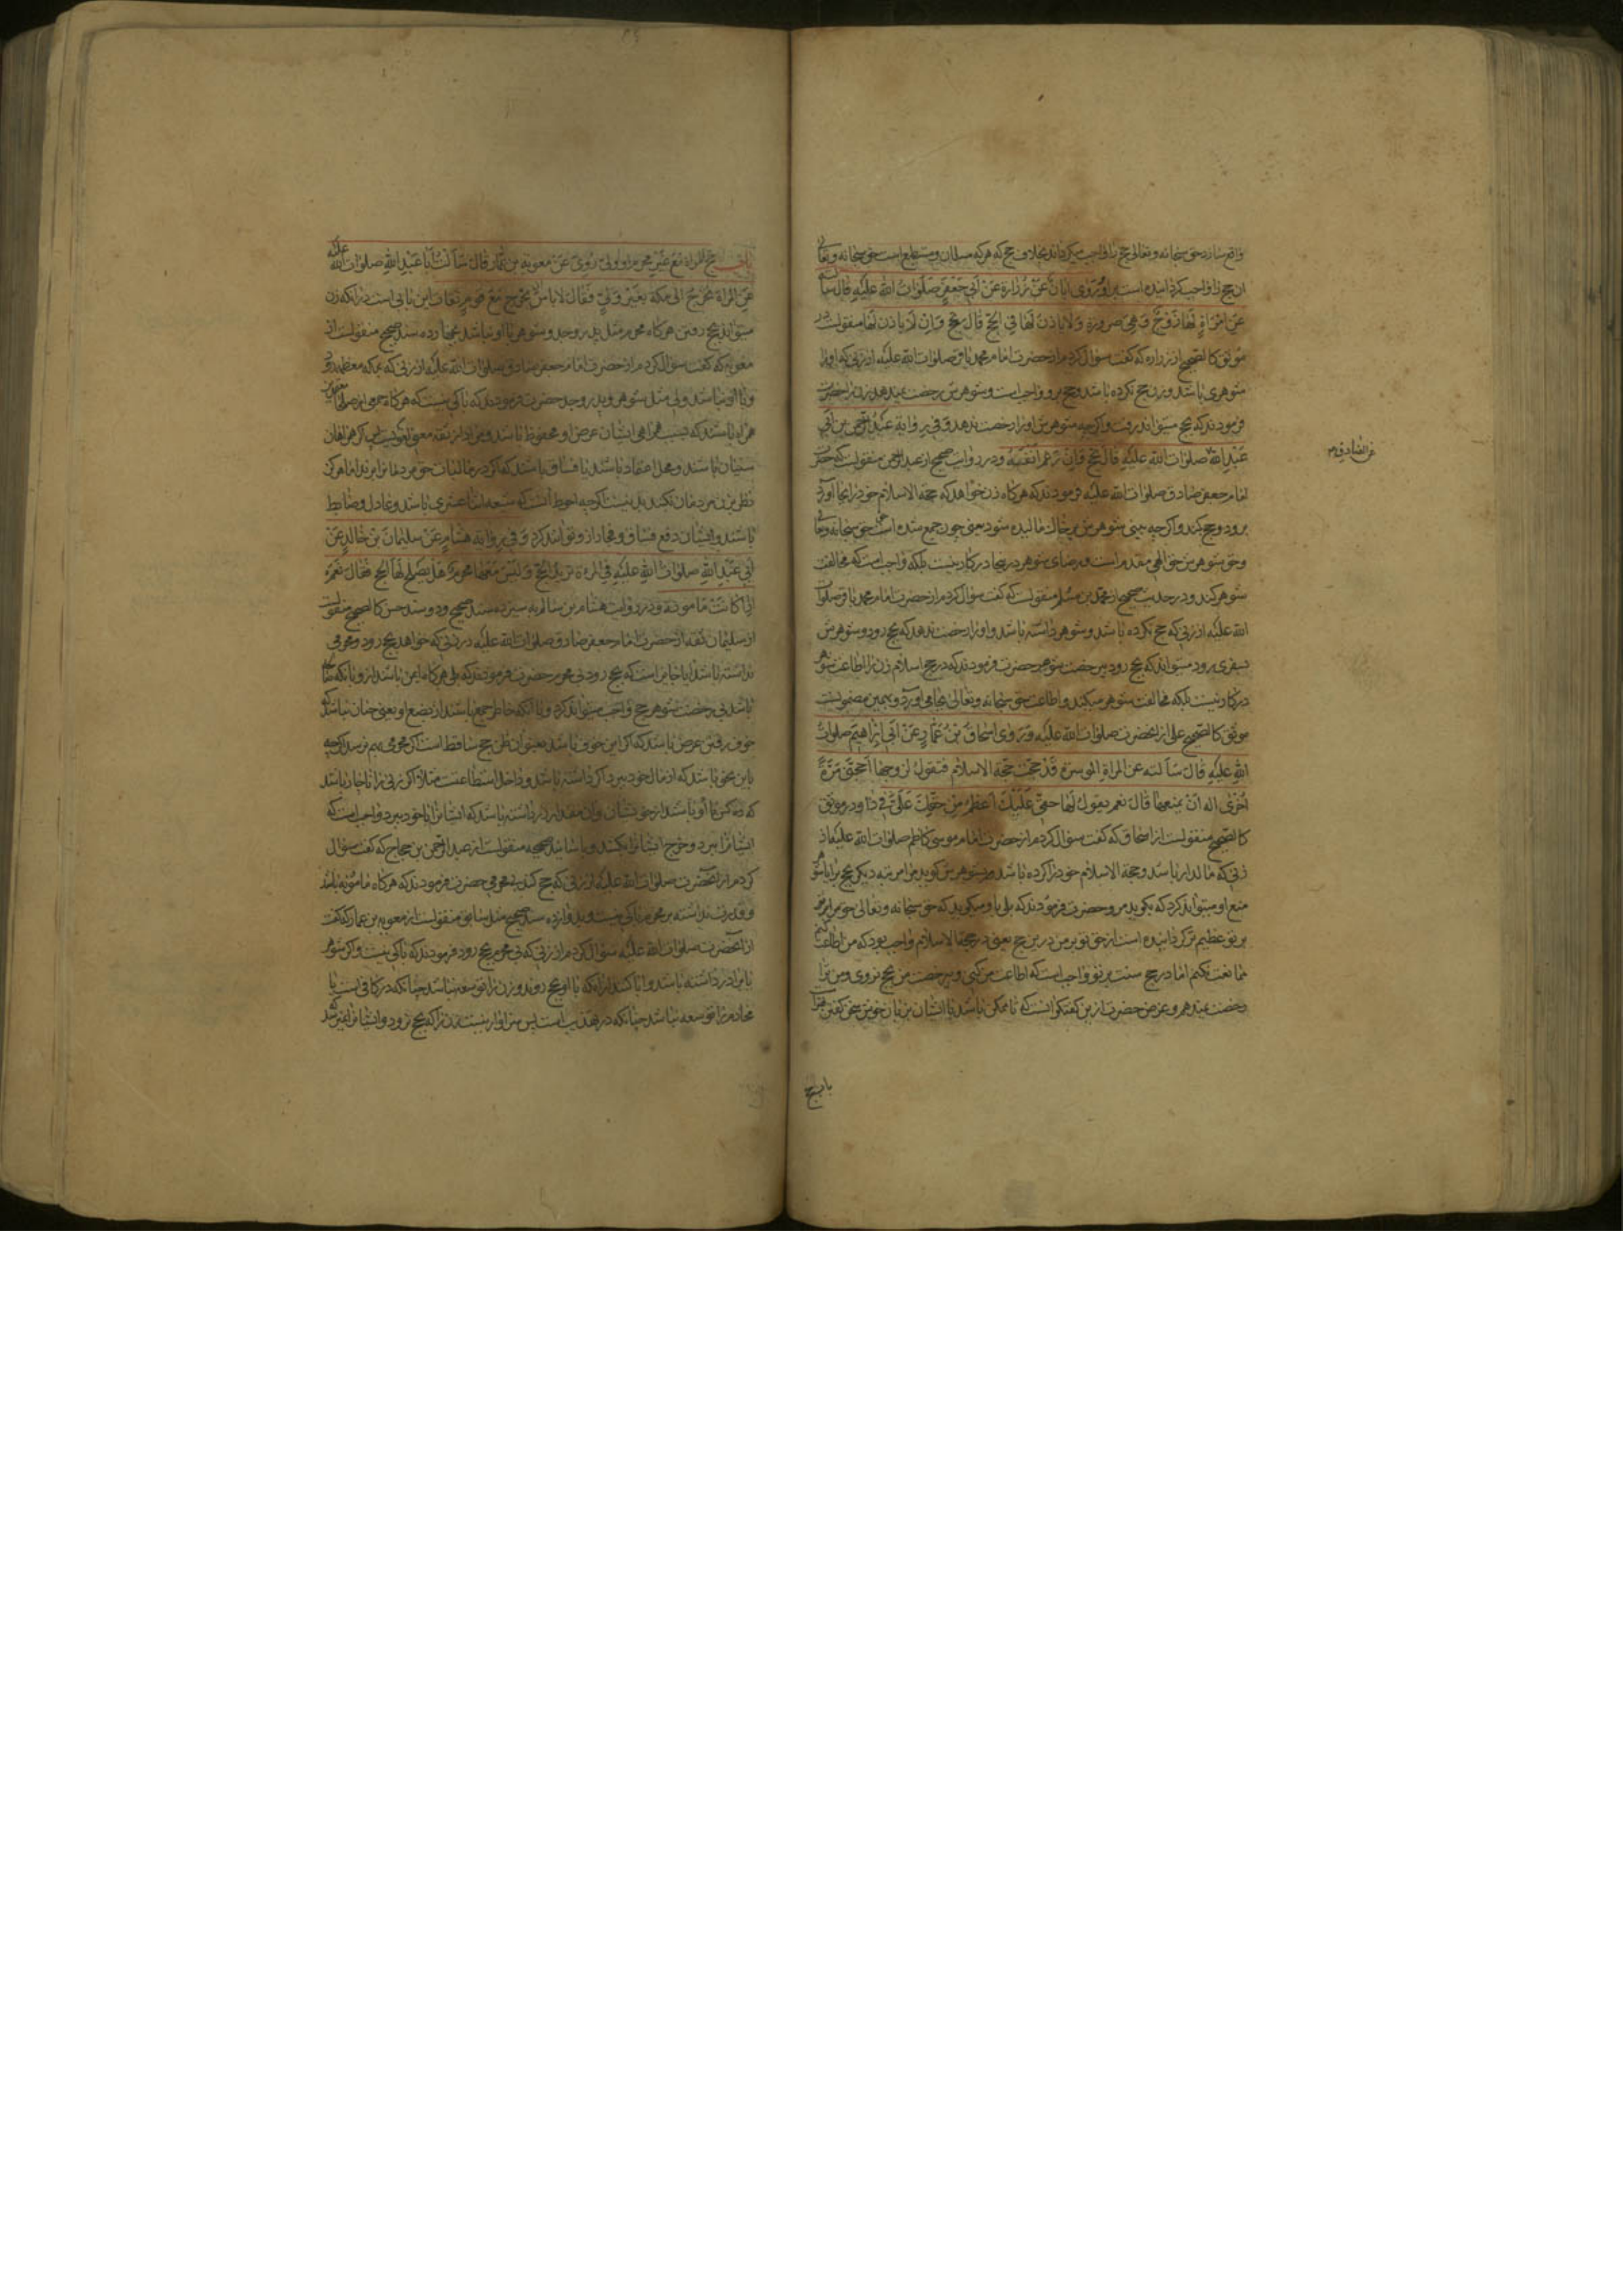 واقع سازد حق سبحانه و تعالی حج را واجب میکرداند بخلاف حج که هر که مسلمان و مستطیع است حق سبحانه و تعالی
ان حج را واجب کردانیده است برو وَرَوی ابانُ عَنْ زُرارة عَنْ اَبی جَعْفَرٍ صَلَواتُ اللهِ عَلَیْهِ قالَ سألته
عَنِ امْرَاةٍ لَهَا زَوْجٌ وَهِیَ صرورة وَ لا یاذن لَها فی الحَجّ قالَ تحج وَ اِنْ لَمْ یاذن لَها منقولست در
موثق کالصحیح از زراره که گفت سؤال کردم از حضرت امام محمد باقر صلوات الله علیه از زنی که او را
شوهری باشد و زن حج نکرده باشد و حج برو واجبست و شوهرش رخصت نمیدهد زن را حضرت
فرمودند که بحج میتواند رفت و اکرچه شوهرش او را رخصت ندهد وَ فی رِوایَةِ عَبْدِ الرَّحمنِ بنِ اَبی
عَبْدِ اللهِ صلوات الله علیه قالَ تحج وَ اِنْ رَغم اَنْفُهُ و در روایت صحیح از عبد الرحمن منقولست که حضرت
امام جعفر صادق صلوات الله علیه فرمودند که هر کاه زن خواهد که حجة الاسلام خود را بجا آورد
برود و حج کند و اکرچه بینی شوهرش بر خاک مالیده شود یعنی چون جمع شده است حق سبحانه و تعالی
و حق شوهرش حق الهی مقدم است و رضای شوهر در اینجا در کار نیست بلکه واجب است که مخالفت
شوهر کند و در حدیث صحیح از محمد بن مسلم منقولست که گفت سؤال کردم از حضرت امام محمد باقر صلوات
الله علیه از زنی که حج نکرده باشد و شوهر داشته باشد و او را رخصت ندهد که بحج رود و شوهرش
بسفری رود میتواند که بحج رود بی رخصت شوهر حضرت فرمودند که در حج اسلام زن را اطاعت شوهر
در کار نیست بلکه مخالفت شوهر میکند و اطاعت حق سبحانه و تعالی بجا می آورد و بهمین مضمونست
موثق کالصحیح علی از آنحضرت صلوات الله علیه وَ رَوی اِسْحاقُ بْنُ عَمّارٍ عَنْ اَبی اِبْرٰهیمَ صلوات
اللهِ عَلَیْهِ قالَ سَاَلته عَنِ المراة الموسرة قَدْ حَجَّت حَجَّة الاسلام فتقول لِزَوجِها اَحجنی مَرَّةً
اُخْرٰی اله اَنْ یمنعها قالَ نعم یقول لَها حقی عَلَیْکِ اَعظَمُ مِنْ حقکِ عَلَیَّ فی ذا و در موثق
کالصحیح منقولست از اسحاق که گفت سؤال کردم از حضرت امام موسی کاظم صلوات الله علیه از
زنی که مالدار باشد و حجة الاسلام خود را کرده باشد و بشوهرش کوید مرا مرتبه دیکر بحج بر ایا شوهر
منع او میتواند کرد که بکوید مرو حضرت فرمودند که بلی باو میکوید که حق سبحانه و تعالی حق مرا
بر تو عظیم تر کردانیده است از حق تو بر من درین حج یعنی در حجة الاسلام واجب بود که من اطاعت کنم
ممانعت نکنم اما در حج سنت بر تو واجب است که اطاعت من کنی و بی رخصت من بحج نروی و من ترا
رخصت نمیدهم و غرض حضرت ازین گفتکو انست که تا ممکن باشد با ایشان بزبان خوش سخن گفتن
عن الصادق
باب حج
باب حج المراة مَعَ غَیْرِ محرم او ولی رُوِیَ عَنْ معویة بن عَمّار قالَ سَاَلْتُ اَبا عَبْدِ اللهِ صلوات الله علیه
عَنِ المراة تَخْرُجُ الی مَکَّة بِغَیْرِ وَلیٍّ فَقالَ لا باسَ تَخْرُج مَعَ قَومٍ ثقات این بابی است در آنکه زن
میتواند بحج رفتن هر کاه محرم مثل پدر و جد و شوهر با او نباشد بچهارده سند صحیح منقولست از
معویه که گفت سؤال کردم از حضرت امام جعفر صادق صلوات الله علیه از زنی که بمکه معظمه رود
و با او نباشد ولی مثل شوهر و پدر و جد حضرت فرمودند که باکی نیست که هر کاه
همراه باشند که بسبب همراهی ایشان عرض او محفوظ باشد
سنیان باشند و محل اعتماد باشند یا فساق باشند که
نظر بزن مردمان نکنند بد نیست اکرچه احوط آنست که شیعه اثنا عشری باشد و عادل و ضابط
باشند و ایشان دفع فساق و فجار ازو توانند کرد وَ فی رِوایَةِ هِشام عَنْ سلیمانَ بْنِ خالِدٍ عَنْ
اَبی عَبْدِ اللهِ صلوات اللهِ عَلَیْهِ فی المَرءة تُرید الحَجَّ وَ لَیْسَ مَعَها محرم هَلْ یَصْلح لَها الحَج فَقالَ نَعَمْ
اِذا کانَتْ مامونة و در روایت هشام بن سالم به سیزده سند صحیح و دو سند حسن کالصحیح منقولست
از سلیمان ثقه از حضرت امام جعفر صادق صلوات الله علیه در زنی که خواهد بحج رود و محرمی
نداشته باشد ایا جایز است که بحج رود بی محرم حضرت فرمودند که بلی هر کاه ایمن باشند ازو
باشد بی رخصت شوهر حج واجب میتواند کرد و یا آنکه خاطر جمع باشند از بضع او یعنی چنان نباشد که
خوف رفتن عرض باشد که اکر این خوف باشد بعنوان ظن حج ساقط است اکر محرمی بهم نرسد اکرچه
باین نحو باشد که از مال خود ببرد اکر داشته باشد و داخل استطاعت مثلا اکر زنی را ناچار باشد
که ده کس با او باشند از خویشان و آن مقدار زر داشته باشد که ایشانرا با خود ببرد واجب است که
ایشانرا ببرد و خرج ایشانرا بکشد و باسانید صحیحه منقولست از عبد الرحمن بن حجاج که گفت سؤال
کردم از آنحضرت صلوات الله علیه از زنی که حج کند بی محرمی حضرت فرمودند که هر کاه مامونه باشد
و قدرت نداشته بر محرم باکی نیست و بدوازده سند صحیح مثل سابق منقولست از معویه بن عمار که گفت
از آنحضرت صلوات الله علیه سؤال کردم از زنی که بی محرم بحج رود فرمودند که باکی نیست و اکر شوهر
یا برادر داشته باشد و ابا کنند از آنکه با او بحج روند و زن را توسعه نباشد چنانکه در کافی است یا
محارم را توسعه نباشد چنانکه در تهذیب است پس سزاوار نیست زن را که بحج نرود و ایشانرا نمیرسد